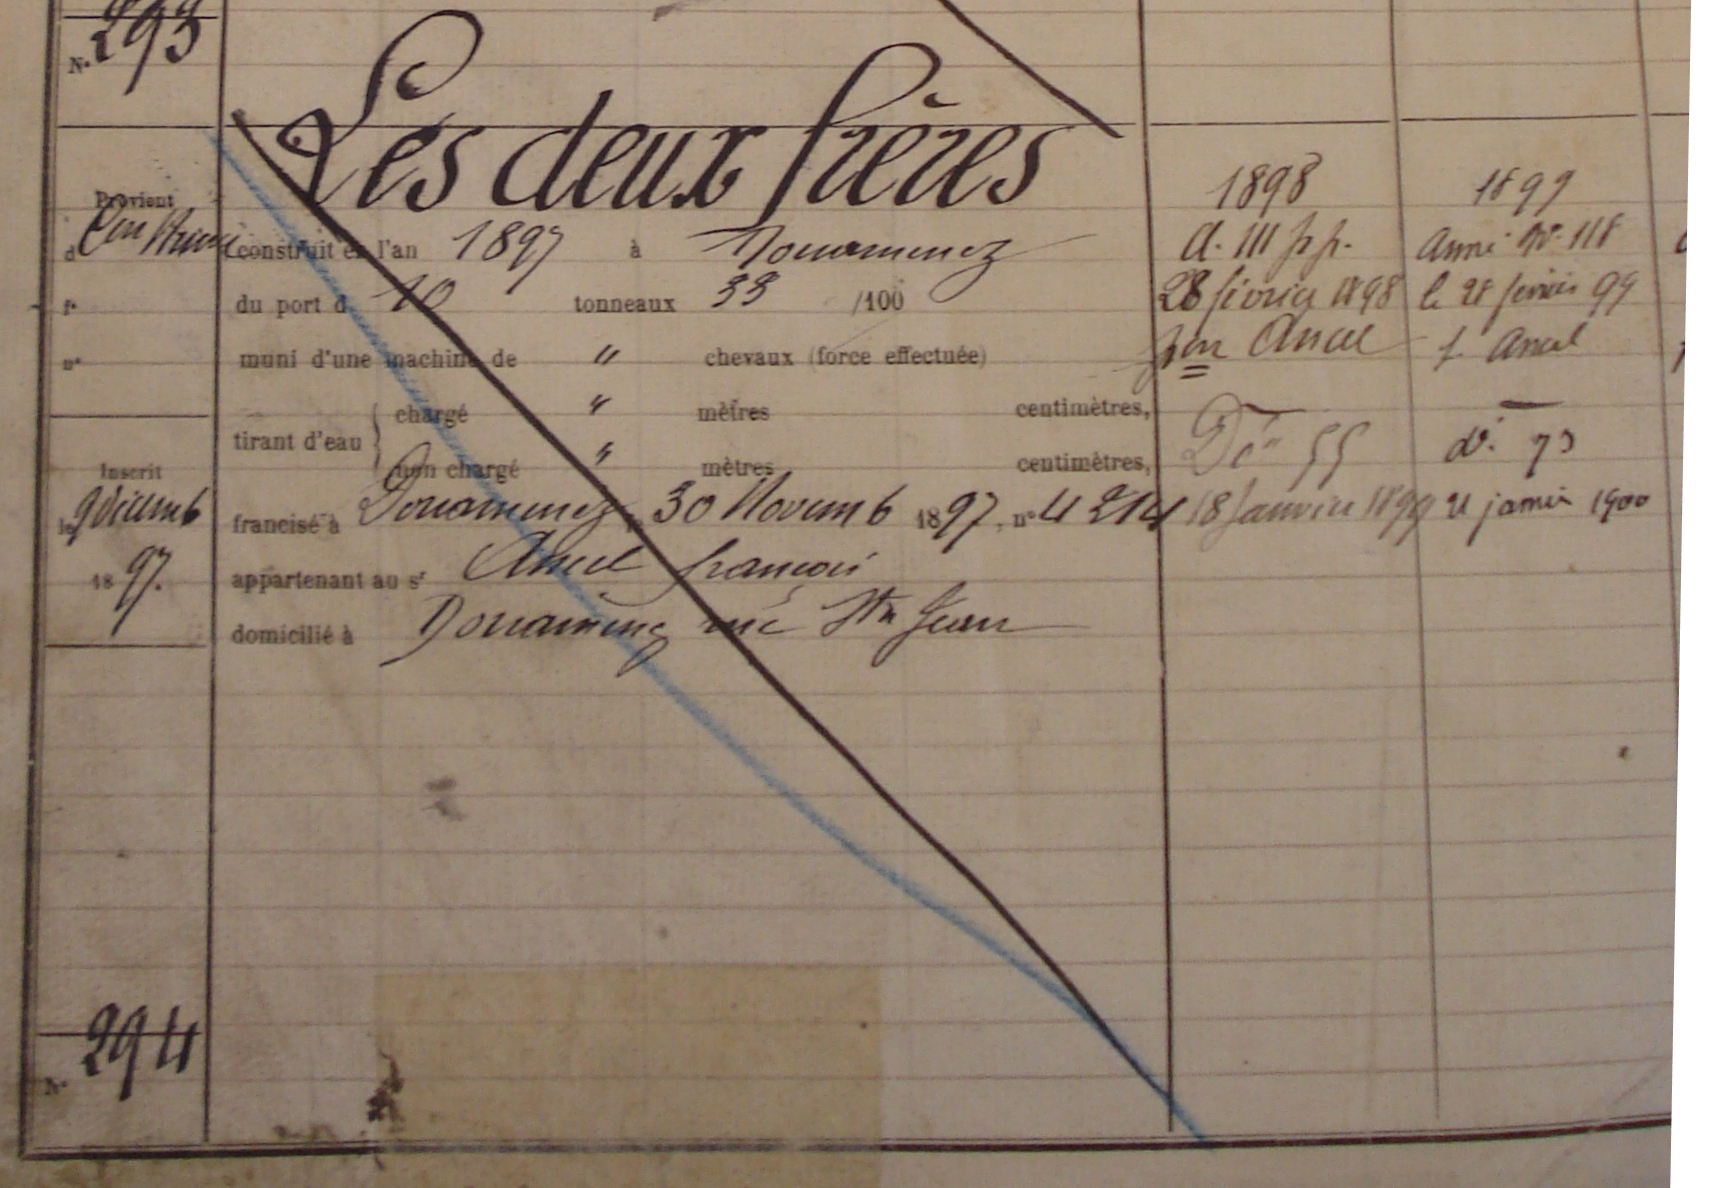 N° 293
Les deux frères
Provient
d
construit en l'an 1897 à Douarnenez
f°
du port d 10 tonneaux 33 /100
n°
muni d'une machine de " chevaux (force effectuée)
tirant d'eau
chargé " mètres centimètres,
non chargé " mètres centimètres,
Inscrit
le 9 décemb
1897.
francisé à Douarnenez le 30 Novemb 1897, n° 4214
appartenant au sr Ancel françois
domicilié à Douarnenez rue Ste Jean
1898
A. 111
28 février 1898
par Ancel
Dén 55
18 Janvier 1899
1899
Armé N°. 118
le 28 février 99
p. Ancel
d°. 73
21 janvier 1900
N° 294